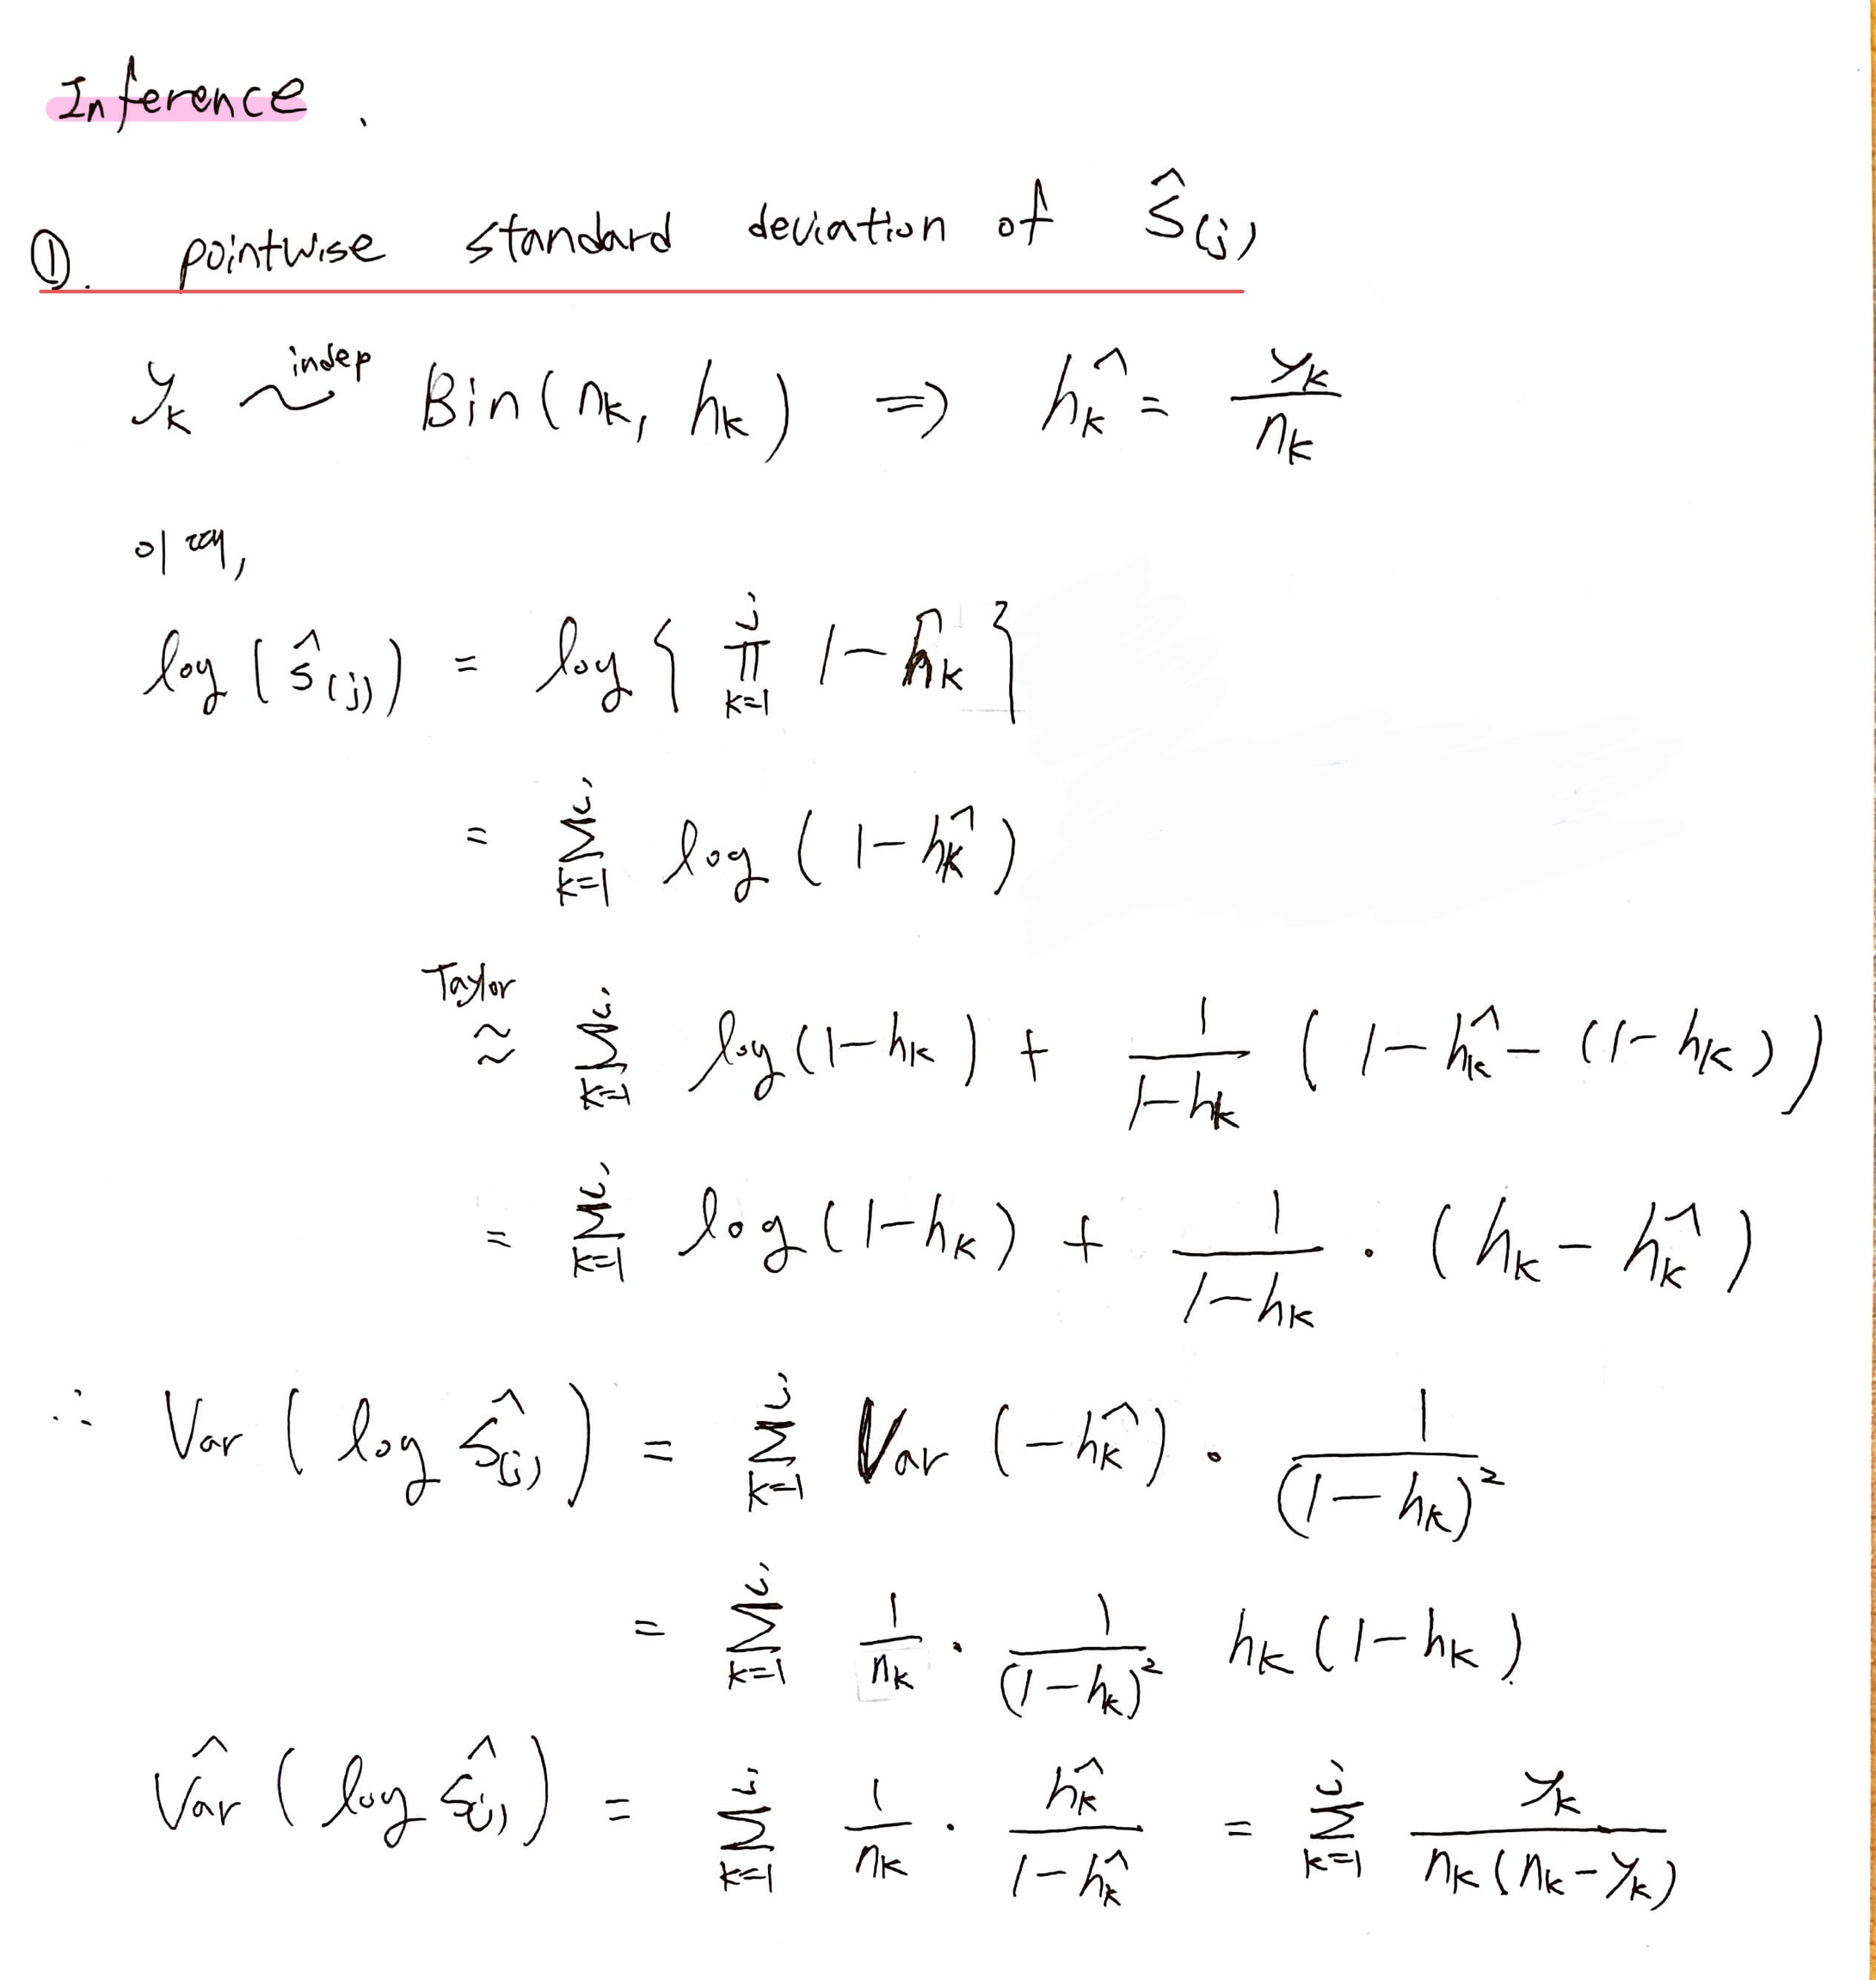 Inference.
①. pointwise standard deviation of Ŝ(j)
y_k ~indep Bin(n_k, h_k) ⇒ ĥ_k = y_k / n_k
이 때,
log(ŝ(j)) = log{ ∏_{k=1}^{j} 1-ĥ_k }
= Σ_{k=1}^{j} log(1-ĥ_k)
Taylor
≈ Σ_{k=1}^{j} log(1-h_k) + 1/(1-h_k) (1-ĥ_k-(1-h_k))
= Σ_{k=1}^{j} log(1-h_k) + 1/(1-h_k) · (h_k - ĥ_k)
∴ Var(log Ŝ(j)) = Σ_{k=1}^{j} Var(-ĥ_k) · 1/(1-h_k)²
= Σ_{k=1}^{j} 1/n_k · 1/(1-h_k)² h_k(1-h_k)
V̂ar(log Ŝ(j)) = Σ_{k=1}^{j} 1/n_k · ĥ_k/(1-ĥ_k) = Σ_{k=1}^{j} y_k/(n_k(n_k-y_k))